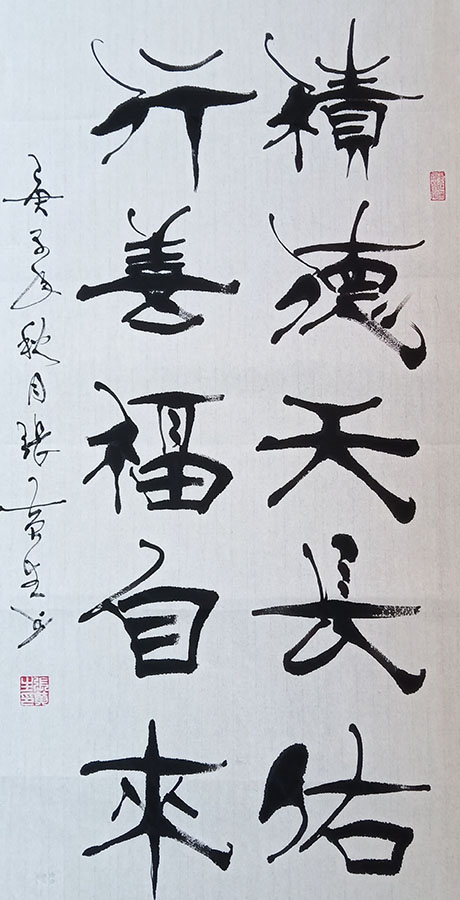 積德天長佑
行善福自來
庚子年秋月張